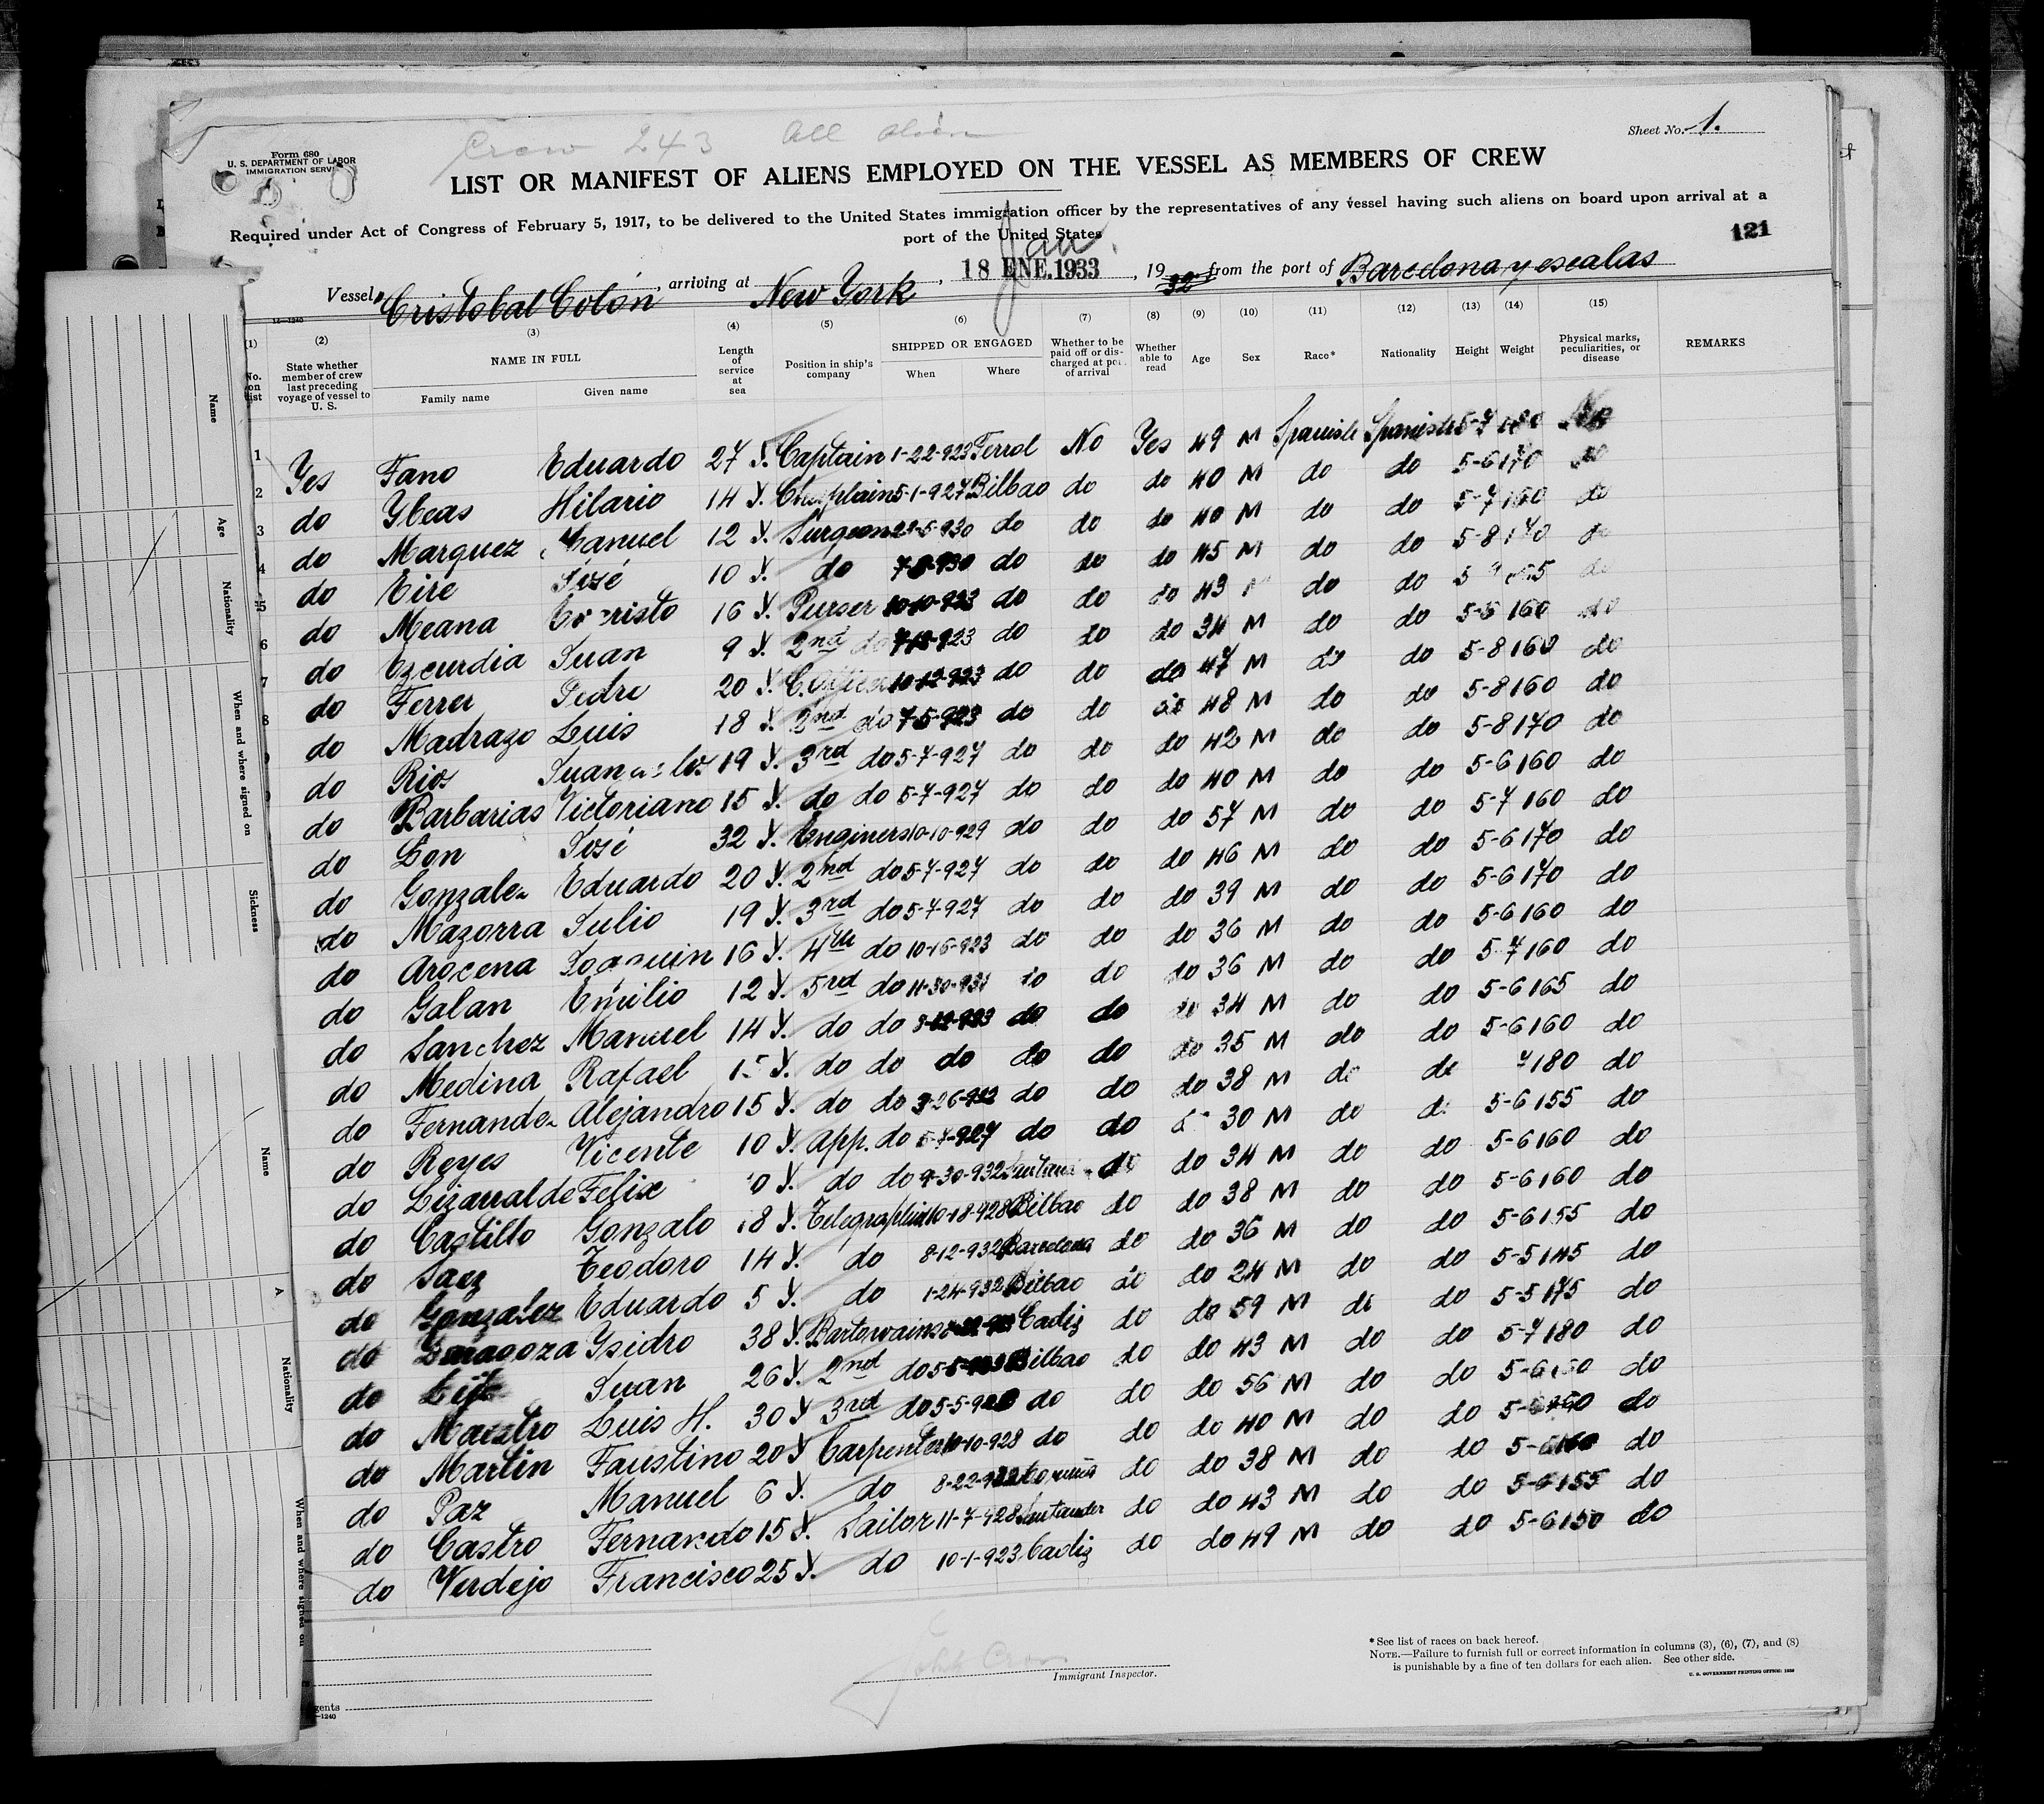 Crew 243 All alien
Sheet No. 1.
Form 680
U. S. DEPARTMENT OF LABOR
IMMIGRATION SERVICE
LIST OR MANIFEST OF ALIENS EMPLOYED ON THE VESSEL AS MEMBERS OF CREW
Required under Act of Congress of February 5, 1917, to be delivered to the United States immigration officer by the representatives of any vessel having such aliens on board upon arrival at a
port of the United States
121
Jan
Vessel Cristobal Colón, arriving at New York, 18 ENE. 1933, 19 32 from the port of Barcelona y escalas
16—1240
(1) (2) (3) (4) (5) (6) (7) (8) (9) (10) (11) (12) (13) (14) (15)
No. on list
State whether member of crew last preceding voyage of vessel to U. S.
NAME IN FULL
Family name
Given name
Length of service at sea
Position in ship's company
SHIPPED OR ENGAGED
When
Where
Whether to be paid off or discharged at port of arrival
Whether able to read
Age
Sex
Race*
Nationality
Height
Weight
Physical marks, peculiarities, or disease
REMARKS
1 Yes Fano Eduardo 27 Y. Captain 1-22-923 Ferrol No Yes 49 M Spanish Spanish 5-7 180 No
2 do Ybeas Hilario 14 Y. Chaplain 5-1-927 Bilbao do do 40 M do do 5-6 170 do
3 do Marquez Manuel 12 Y. Surgeon 22-5-930 do do do 40 M do do 5-7 160 do
4 do Eire José 10 Y. do 7-8-930 do do do 45 M do do 5-8 170 do
5 do Meana Evaristo 16 Y. Purser 10-10-923 do do do 43 M do do 5 do
6 do Ezcurdia Juan 9 Y. 2nd do 923 do do do 34 M do do 5-6 160 do
7 do Ferrer Pedro 20 Y. 10-12-923 do do do 47 M do do 5-8 160 do
8 do Madrazo Luis 18 Y. 2nd do 7-5-923 do do do 48 M do do 5-8 160 do
do Rios Juan 19 Y. 3rd do 5-7-927 do do do 42 M do do 5-8 170 do
do Barbarias Victoriano 15 Y. do do 5-7-927 do do do 40 M do do 5-6 160 do
do Lon José 32 Y. Enginers 10-10-929 do do do 57 M do do 5-7 160 do
do Gonzalez Eduardo 20 Y. 2nd do 5-7-927 do do do 46 M do do 5-6 170 do
do Mazorra Julio 19 Y. 3rd do 5-7-927 do do do 39 M do do 5-6 170 do
do Arocena Joaquin 16 Y. 4th do 10-16-923 do do do 36 M do do 5-6 160 do
do Galan Emilio 12 Y. 5rd do 11-30-931 do do do 36 M do do 5-7 160 do
do Sanchez Manuel 14 Y. do do 8-12-923 do do do 34 M do do 5-6 165 do
do Medina Rafael Y. do do do do do do 35 M do do 5-6 160 do
do Fernandez Alejandro 15 Y. do do 3-26-932 do do do 38 M do do 7 180 do
do Reyes Vicente 10 Y. app. do 5-7-927 do do do 30 M do do 5-6 155 do
do Lizarralde Felix 10 Y. do do 9-30-932 do do 34 M do do 5-6 160 do
do Castillo Gonzalo 18 Y. 10-18-928 Bilbao do do 38 M do do 5-6 160 do
do Saez Teodoro 14 Y. do 8-12-932 Barcelona do do 36 M do do 5-6 155 do
do Gonzalez Eduardo 5 Y. do 1-24-932 Bilbao do do 24 M do do 5-5 145 do
do Ysidro 38 Y. Cadiz do do 59 M do do 5-5 175 do
do Juan 26 Y. 2nd do 5-5-923 Bilbao do do 43 M do do 5-7 180 do
do Maestro Luis H. 30 Y 3rd do 5-5-92 do do do 56 M do do 5-6 do
do Martin Faustino 20 Y Carpenter 10-10-928 do do do 40 M do do 5-6 do
do Paz Manuel 6 Y. do 8-22-932 Coruña do do 38 M do do 5-6 160 do
do Castro Fernando 15 Y. Sailor 11-7-928 Santander do do 43 M do do 5-6 155 do
do Verdejo Francisco 25 Y. do 10-1-923 Cadiz do do 49 M do do 5-6 150 do
Immigrant Inspector.
*See list of races on back hereof.
NOTE.—Failure to furnish full or correct information in columns (3), (6), (7), and (8)
is punishable by a fine of ten dollars for each alien. See other side.
U. S. GOVERNMENT PRINTING OFFICE: 1930
gents
—1240
Name
Age
Nationality
When and where signed on
Sickness
Name
A
Nationality
When and where signed on